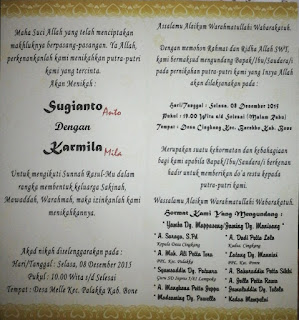 Maha Suci Allah yang telah menciptakan
makhluknya berpasang-pasangan. Ya Allah,
perkenankanlah kami menikahkan putra-putri
kami yang tercinta.
Akan Menikah :
Sugianto Anto
Dengan
Karmila Mila
Untuk mengikuti Sunnah Rasul-Mu dalam
rangka membentuk keluarga Sakinah,
Mawaddah, Warahmah, maka izinkanlah kami
menikahkannya.
Akad nikah diselenggarakan pada :
Hari/Tanggal : Selasa, 08 Desember 2015
Pukul : 10.00 Wita s/d Selesai
Tempat : Desa Melle Kec. Palakka Kab. Bone
Assalamu Alaikum Warahmatullahi Wabarakatuh.
Dengan memohon Rahmat dan Ridha Allah SWT,
kami bermaksud mengundang Bapak/Ibu/Saudara/i
pada pernikahan putra-putri kami yang Insya Allah
akan dilaksanakan pada :
Hari/Tanggal : Selasa, 08 Desember 2015
Pukul : 19.00 Wita s/d Selesai (Malam Rabu)
Tempat : Desa Cingkang Kec. Barebbo Kab. Bone
Merupakan suatu kehormatan dan kebahagiaan
bagi kami apabila Bapak/Ibu/Saudara/i berkenan
hadir untuk memberikan do'a restu kepada
putra-putri kami.
Wassalamu Alaikum Warahmatullahi Wabarakatuh.
Hormat Kami Yang Mengundang :
A. Saraga, S.Pd
Kepala Desa Cingkang
A. Muh. Ali Petta Tora
PPL. Kec. Palakka
A. Mangkona PettaJeča
A. Dadi Petta Lolo
Kadus Cingkang
Latang Dg. Manniai
PPL. Kec. Ponre
A. Baharuddin Petta Sikki
A. Jella Petta Rawe
Jamaluddin Dg. Talala
Kadus Mampotu